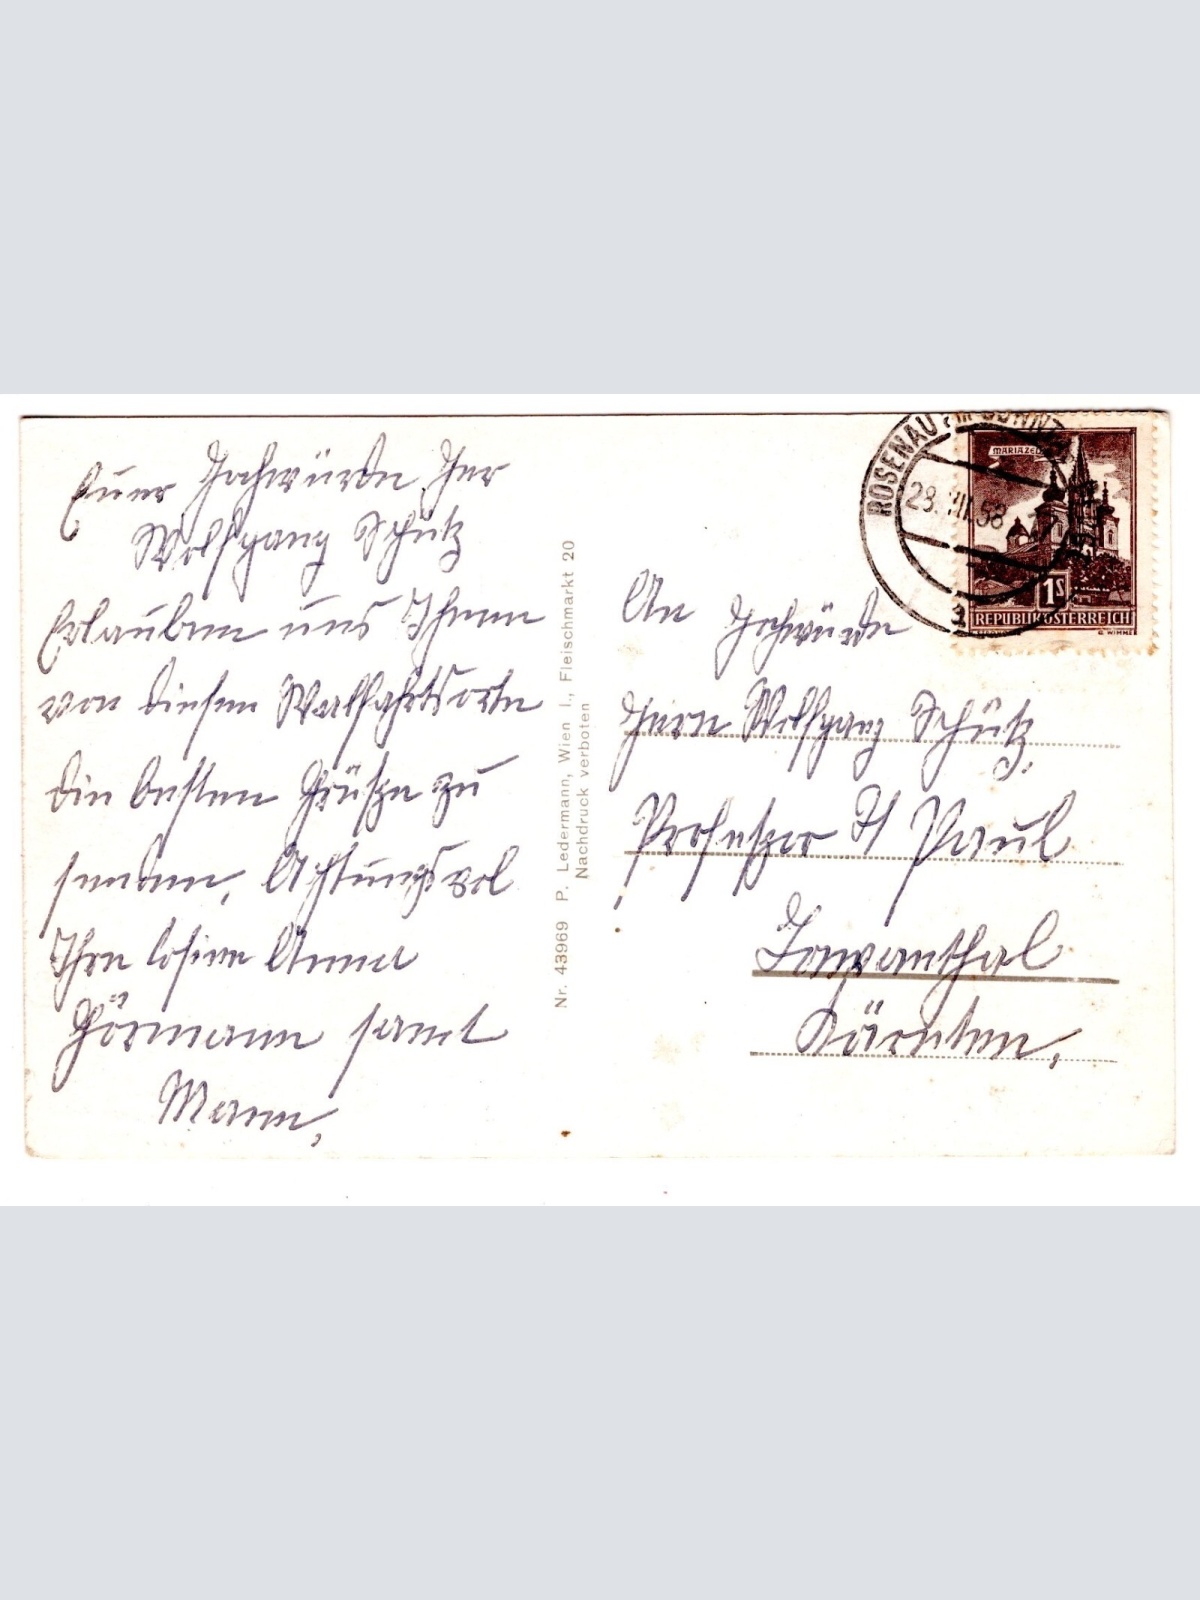 Euer Hochwürden Her
Wolfgang Schütz
Erlauben uns Ihnen
von diesen Wallfahrtsorte
die besten Grüße zu
senden, Achtungsvol
Ihre Anna
Hörmann samt
Mann,
Nr. 43969 P. Ledermann, Wien I., Fleischmarkt 20
Nachdruck verboten
ROSENAU am SONNT
28. VIII. 58
MARIAZELL
1S
REPUBLIK ÖSTERREICH
G. WIMMER
An Hochwürden
Herrn Wolfgang Schütz,
Professor St Paul
Lavanthal
Kärnten,